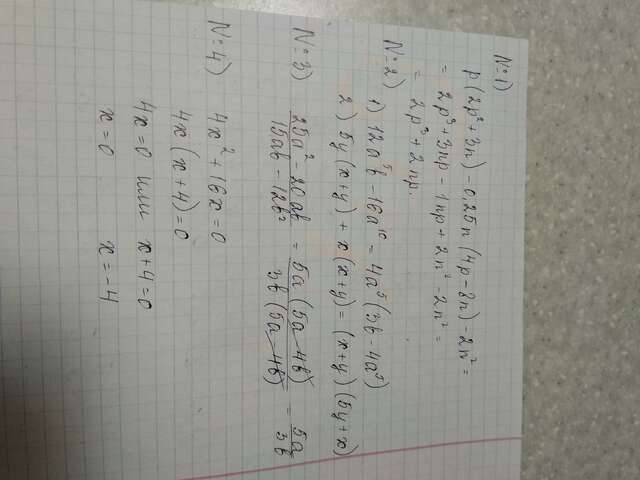 N=1)
p(2p²+3n)-0,25n(4p-8n)-2n²=
= 2p³+3np-1np+2n²-2n²=
= 2p³+2np.
N=2)
1) 12a⁵b-16a¹⁰=4a⁵(3b-4a⁵)
2) 5y(x+y)+x(x+y)=(x+y)(5y+x)
N=3)
25a²-20ab / 15ab-12b² = 5a(5a-4b) / 3b(5a-4b) = 5a / 3b
N=4)
4x²+16x=0
4x(x+4)=0
4x=0 или x+4=0
x=0 x=-4